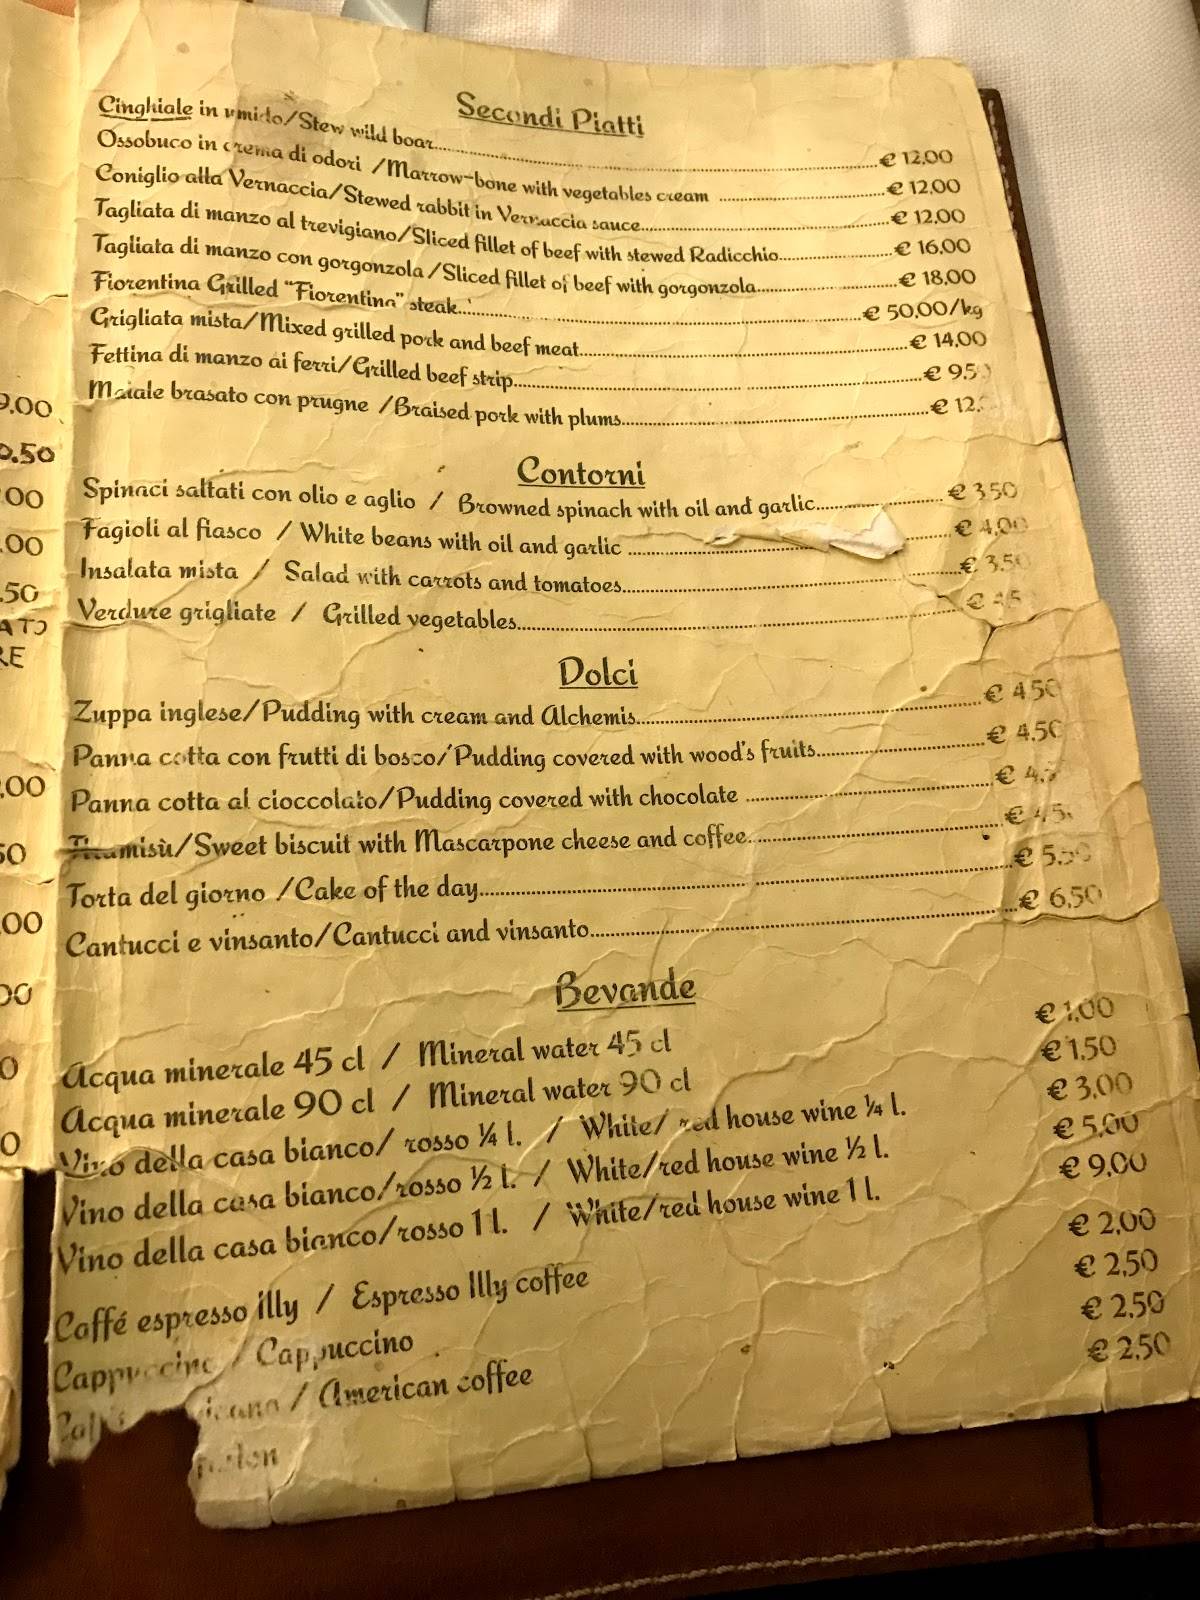 9.00
0.50
.00
.00
.50
ATO
RE
.00
50
.00
00
0
0
Secondi Piatti
Cinghiale in umido/Stew wild boar € 12,00
Ossobuco in crema di odori /Marrow-bone with vegetables cream € 12,00
Coniglio alla Vernaccia/Stewed rabbit in Vernaccia sauce € 12,00
Tagliata di manzo al trevigiano/Sliced fillet of beef with stewed Radicchio € 16,00
Tagliata di manzo con gorgonzola /Sliced fillet of beef with gorgonzola € 18,00
Fiorentina Grilled "Fiorentina" steak € 50,00/kg
Grigliata mista/Mixed grilled pork and beef meat € 14,00
Fettina di manzo ai ferri/Grilled beef strip € 9,50
Maiale brasato con prugne /Braised pork with plums € 12,
Contorni
Spinaci saltati con olio e aglio / Browned spinach with oil and garlic € 3,50
Fagioli al fiasco / White beans with oil and garlic € 4,00
Insalata mista / Salad with carrots and tomatoes € 3,50
Verdure grigliate / Grilled vegetables € 4,5
Dolci
Zuppa inglese/Pudding with cream and Alchemis € 4,50
Panna cotta con frutti di bosco/Pudding covered with wood's fruits € 4,50
Panna cotta al cioccolato/Pudding covered with chocolate € 4,5
Tiramisù/Sweet biscuit with Mascarpone cheese and coffee € 4,5
Torta del giorno /Cake of the day € 5,50
Cantucci e vinsanto/Cantucci and vinsanto € 6,50
Bevande
Acqua minerale 45 cl / Mineral water 45 cl € 1,00
Acqua minerale 90 cl / Mineral water 90 cl € 1,50
Vino della casa bianco/ rosso ¼ l. / White/ red house wine ¼ l. € 3,00
Vino della casa bianco/rosso ½ l. / White/red house wine ½ l. € 5,00
Vino della casa bianco/rosso 1 l. / White/red house wine 1 l. € 9,00
Caffé espresso illy / Espresso Illy coffee € 2,00
Cappuccino / Cappuccino € 2,50
/ American coffee € 2,50
€ 2,50